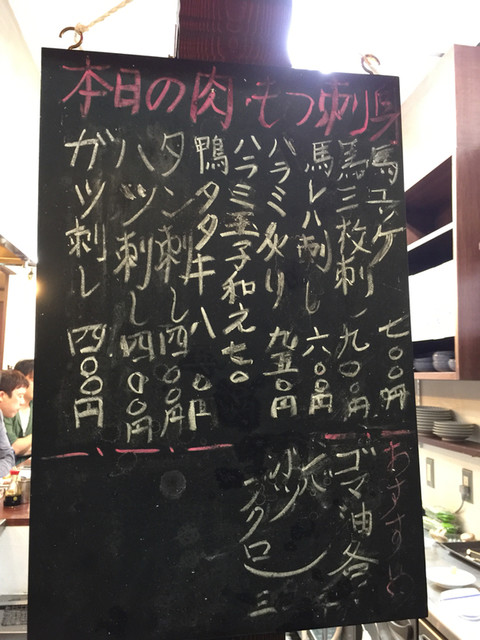 本日の肉・もつ刺身
馬ユッケ 七〇〇円
馬三枚刺し 一九〇〇円
馬レバ刺し 六〇〇円
ハラミ炙り 九五〇円
ハラミ玉子和え
鴨タタキ 八
タン刺し 四〇〇円
ハツ刺し 四〇〇円
ガツ刺し 四〇〇円
おすすめ
ゴマ油